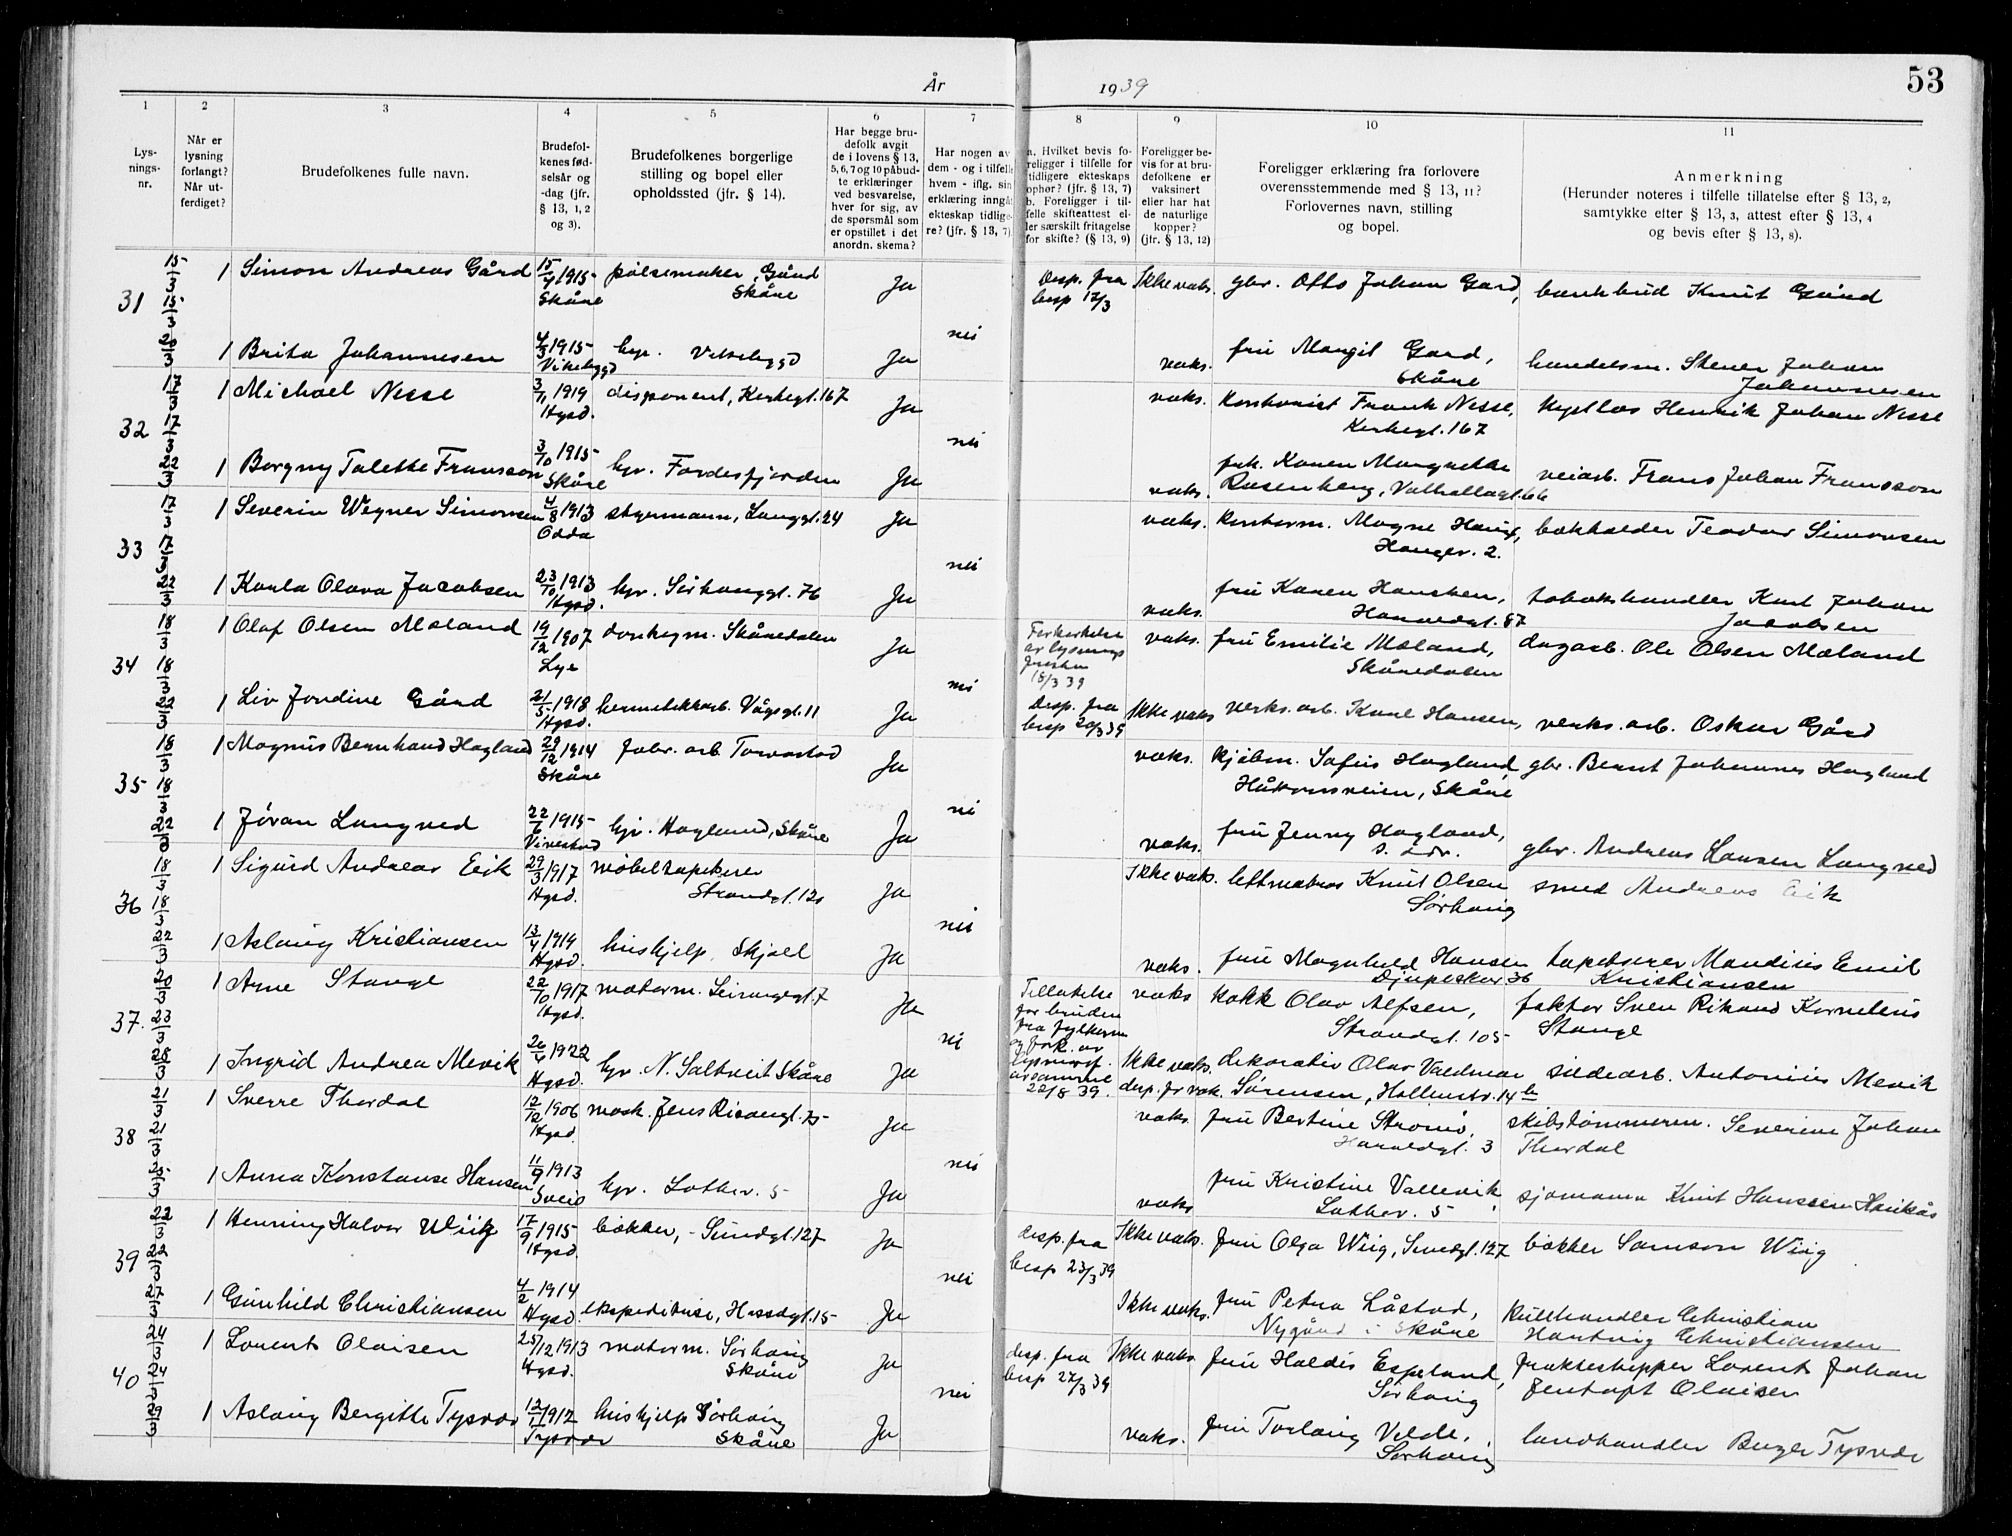 År 1939
53
1 2 3 4 5 6 7 8 9 10 11
Lysningsnr.
Når er lysning forlangt? Når utferdiget?
Brudefolkenes fulle navn.
Brudefolkenes fødselsår og -dag (jfr. § 13, 1, 2 og 3).
Brudefolkenes borgerlige stilling og bopel eller opholdssted (jfr. § 14).
Har begge brudefolk avgit de i lovens § 13, 5, 6, 7 og 10 påbudte erklæringer ved besvarelse, hver for sig, av de spørsmål som er opstillet i det anordn. skema?
Har nogen av dem - og i tilfelle hvem - iflg. sin erklæring inngått ekteskap tidligere? (jfr. § 13, 7)
a. Hvilket bevis foreligger i tilfelle for tidligere ekteskaps ophør? (jfr. § 13, 7)
b. Foreligger i tilfelle skifteattest eller særskilt fritagelse for skifte? (§ 13, 9)
Foreligger bevis for at brudefolkene er vaksinert eller har hat de naturlige kopper? (jfr. § 13, 12)
Foreligger erklæring fra forlovere overensstemmende med § 13, 11? Forlovernes navn, stilling og bopel.
Anmerkning
(Herunder noteres i tilfelle tillatelse efter § 13, 2, samtykke efter § 13, 3, attest efter § 13, 4 og bevis efter § 13, 8).
31 15/3 15/3 20/3
1 Simon Andreas Gård 15/4 1915 Skåre pølsemaker, Gård Skåre Ja Desp. fra besp 17/3 Ikke vaks. gbr. Otto Johan Gard, bankbud Knut Gård
nei
1 Brita Johannesen 4/3 1915 Vikebygd hjv. Vikebygd Ja vaks. fru Margit Gard, Skåre handelsm. Stener Johan Johannesen
32 17/3 17/3 22/3
1 Michael Nesse 3/11 1919 Hgsd. disponent, Kirkegt. 167 Ja vaks. Kontorist Frank Nesse, Kirkegt. 167 Kystlos Henrik Johan Nesse
nei
1 Borgny Talette Fransson 3/10 1915 Skåre hjv. Førdesfjorden Ja vaks. frk. Karen Margrethe Rosenberg, Valhallagt. 66 veiarb. Frans Johan Fransson
33 17/3 17/3 22/3
1 Severin Wegner Simonsen 4/8 1913 Odda styrmann, Langgt. 24 Ja vaks. Kontorm. Magne Haug, Haugev. 2. bokholder Teodor Simonsen
nei
1 Karla Olava Jacobsen 23/10 1913 Hgsd. hjv. Sørhauggt. 76 Ja vaks. fru Karen Hansken, Haraldsgt. 87 tobakshandler Karl Johan Jacobsen
34 18/3 18/3 22/3
1 Olaf Olsen Mæland 19/12 1907 Lye donkeym. Skåredalen Ja Forkortelse av lysningsfristen 18/3 39 vaks. fru Emilie Mæland, Skåredalen dagarb. Ole Olsen Mæland
nei
1 Liv Jordine Gård 21/5 1918 Hgsd. hermetikkarb. Vågsgt. 11 Ja Desp. fra besp 20/3 39 Ikke vaks verks. arb. Karl Hansen, verks. arb. Oskar Gård
35 18/3 18/3 22/3
1 Magnus Bernhard Hagland 29/12 1914 Skåre fabr. arb Torvastad Ja vaks. kjøbm. Sofus Hagland, Håkonsveien, Skåre gbr. Bernt Johannes Hagland
nei
1 Jøran Langved 22/6 1915 Vinestad hjv. Hagland, Skåre Ja vaks. fru Jenny Hagland, s. adr. gbr. Andreas Larsen Langved
36 18/3 18/3 22/3
1 Sigurd Andreas Eik 29/3 1917 Hgsd. møbeltapetserer Strandgt. 12 Ja Ikke vak. lettmatros Knut Olsen Sørhaug smed Andreas Eik
nei
1 Aslaug Kristiansen 13/4 1919 Hgsd. hushjelp, Skjold Ja vaks. fru Magnhild Hansen Djupeskar 36 tapetserer Mandius Emil Kristiansen
37. 20/3 23/3 28/3
1 Arne Stange 22/10 1917 Hgsd. motorm. Leirangergt. 7 Ja Tillatelse for bruden fra fylkesm og fork. av lysningsf. avsamme 22/3 39. vaks Kokk Olav Alfsen, Strandgt. 105 faktor Sven Rikard Kornelius Stange
nei
1 Ingrid Andrea Mevik 26/4 1922 Hgsd. hjv. N. Saltveit Skåre Ja Ikke vaks. desp. fr vak. dekoratør Olav Valdmar Sørensen, Hollenderv. 14 b sildearb. Antonius Mevik
38 21/3 21/3 25/3
1 Sverre Thordal 12/12 1906 Hgsd. mask. Jens Risøengt. 75 Ja vaks. fru Bertine Stromø, Haraldgt. 3 skibstømmerm. Severin Johan Thordal
nei
1 Anna Konstanse Hansen 11/9 1913 Sveio hjv. Lotherv. 5 Ja vaks fru Kristine Vallevik, Lotherv. 5 sjømann Knut Hanssen Haukås
39 22/3 22/3 27/3
1 Henning Halvor Wiig 17/9 1915 Hgsd. bøkker, - Sundgt. 127 Ja Desp. fra besp 23/3 39 Ikke vaks. fru Olga Wiig, Sundgt. 127 bøkker Samson Wiig
nei
1 Gunhild Christiansen 4/2 1914 Hgsd. ekspeditrise, Hassdgt. 15 Ja Ikke vaks. fru Petra Låstad, Nygård i Skåre Kullhandler Christian Hartvig Christiansen
40 24/3 24/3 29/3
1 Lorents Olaisen 25/12 1913 Hgsd. motorm. Sørhaug Skåre Ja desp. fra besp 27/3 39 Ikke vaks. fru Haldis Espeland, Sørhaug frakteskipper Lorents Johan Jentoft Olaisen
nei
1 Aslaug Bergitte Tysvær 12/1 1912 Tysvær hushjelp Sørhaug Skåre Ja vaks. fru Torlaug Velde, Sørhaug landhandler Birger Tysvær